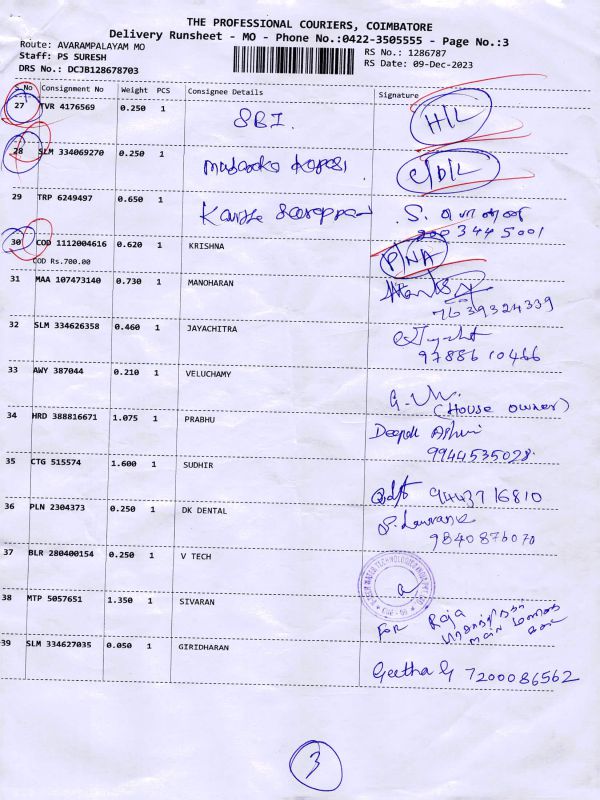 THE PROFESSIONAL COURIERS, COIMBATORE
Delivery Runsheet - MO - Phone No.:0422-3505555 - Page No.:3
Route: AVARAMPALAYAM MO
RS No.: 1286787
Staff: PS SURESH
RS Date: 09-Dec-2023
DRS No.: DCJB128678703
S.No Consignment No Weight PCS Consignee Details Signature
27 TVR 4176569 0.250 1 SBI. H/L
28 SLM 334069270 0.250 1 C/D/L
29 TRP 6249497 0.650 1 S.
30 COD 1112004616 0.620 1 KRISHNA P/NA
COD Rs.700.00
31 MAA 107473140 0.730 1 MANOHARAN
7639324339
32 SLM 334626358 0.460 1 JAYACHITRA
9788610466
33 AWY 387044 0.210 1 VELUCHAMY
(House owner)
34 HRD 388816671 1.075 1 PRABHU Deepak
9944535028
35 CTG 515574 1.600 1 SUDHIR 9443716810
36 PLN 2304373 0.250 1 DK DENTAL
9840876070
37 BLR 280400154 0.250 1 V TECH
38 MTP 5057651 1.350 1 SIVARAN For Raja
39 SLM 334627035 0.050 1 GIRIDHARAN
Geetha G 7200086562
3